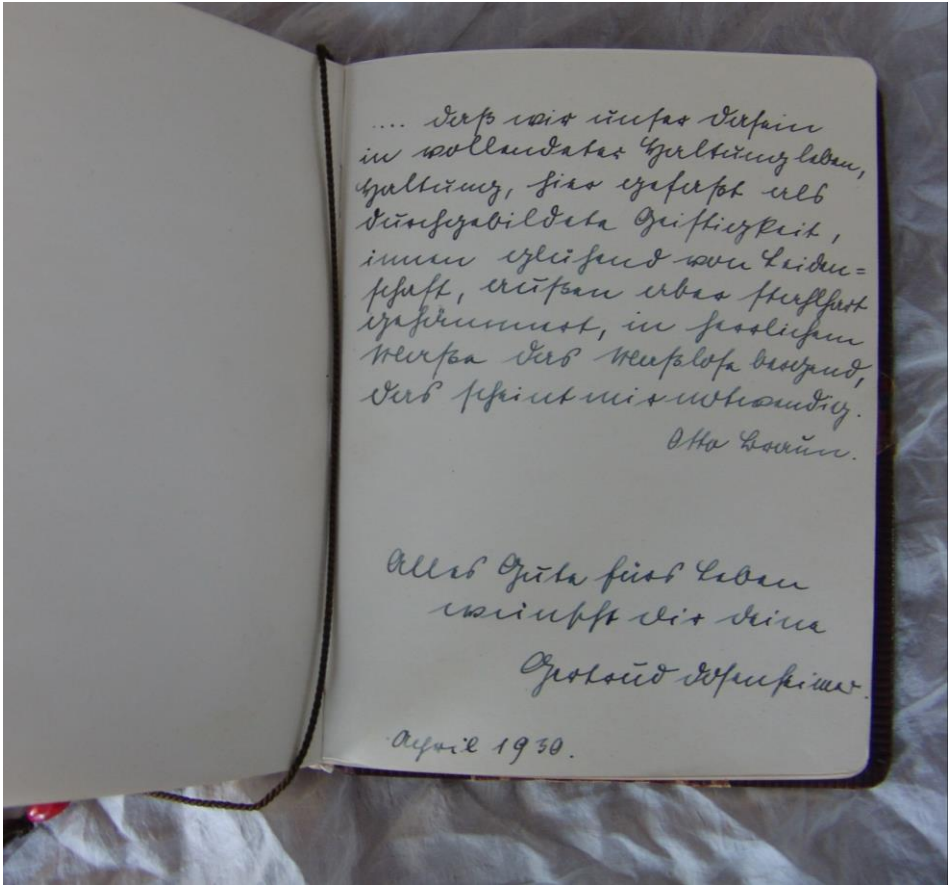 .... daß wir unser Dasein
in vollendeter Haltung leben,
Haltung, hier gefaßt als
durchgebildete Geistigkeit,
innen glühend von Leiden=
schaft, außen aber stahlhart
gehämmert, in herrlichem
Maße das Maßlose bergend,
das scheint mir notwendig.
Otto Braun.
Alles Gute fürs Leben
wünscht dir deine
Gertrud Dosenheimer.
April 1930.